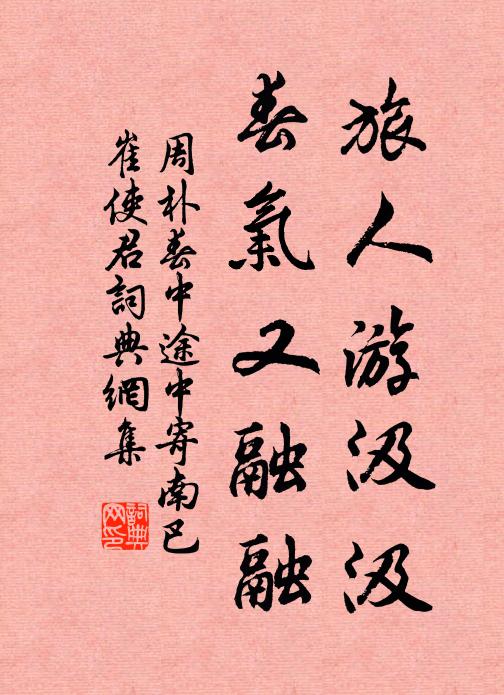 旅人游汲汲
春氣又融融
周朴春中途中寄南巴
崔使君詞典網集
詞典
网印